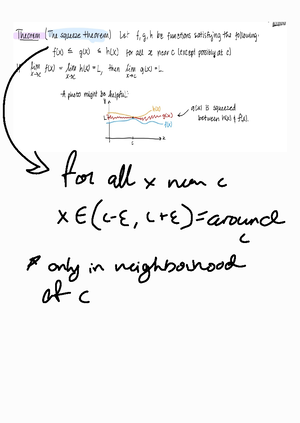 Theorem (The squeeze theorem) Let f, g, h be functions satisfying the following:
f(x) ≤ g(x) ≤ h(x) for all x near c (except possibly at c)
If lim x→c f(x) = lim x→c h(x) = L, then lim x→c g(x) = L.
A photo might be helpful:
g(x) is squeezed
between h(x) & f(x).
h(x)
g(x)
f(x)
L
c
x
for all x near c
x ∈ (c-ε, c+ε) = around
c
* only in neighbourhood
of c